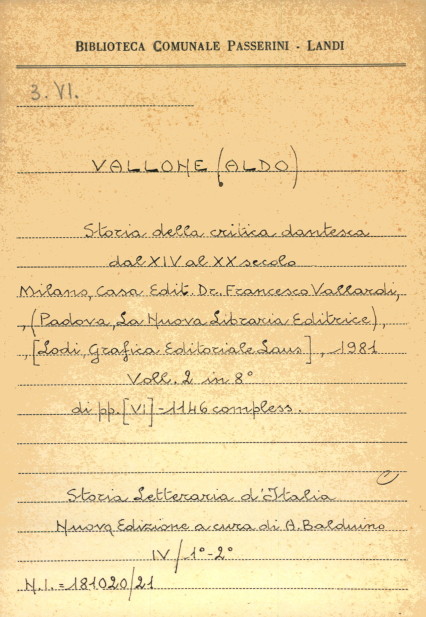 BIBLIOTECA COMUNALE PASSERINI - LANDI
3. VI.
VALLONE (ALDO)
Storia della critica dantesca
dal XIV al XX secolo
Milano, Casa Edit. Dr. Francesco Vallardi,
, (Padova, La Nuova Libraria Editrice),
, [Lodi, Grafica Editoriale Laus], 1981
Voll. 2 in 8°
di pp. [VI]-1146 compless.
Storia Letteraria d'Italia
Nuova Edizione a cura di A. Balduino
IV/1°-2°
N.I. = 181020/21